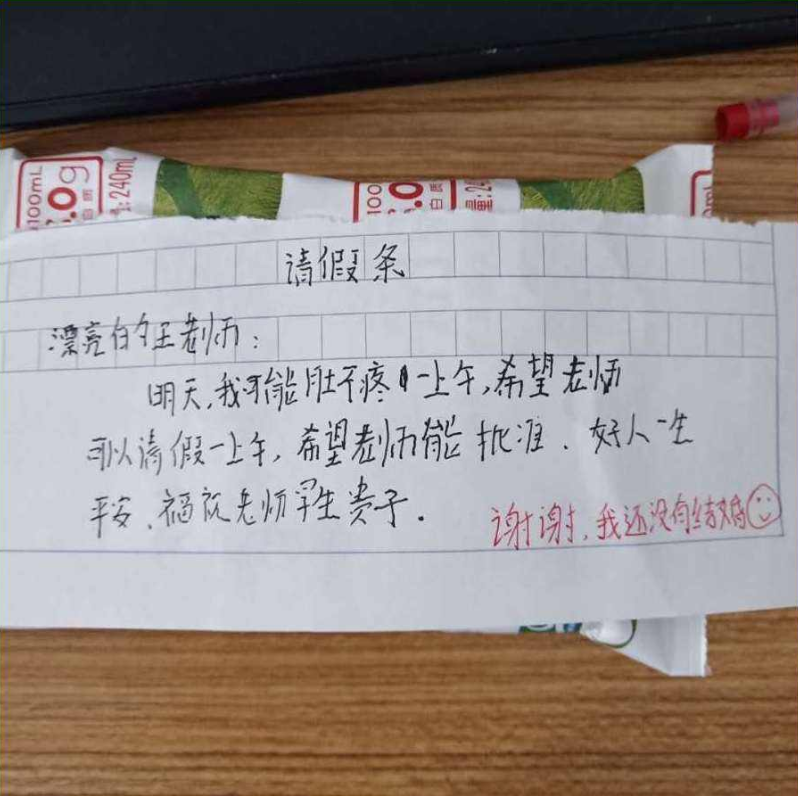 100mL
.0g
:240mL
100
.0
量:24
0mL
请假条
漂亮的王老师:
明天,我可能肚子疼一上午,希望老师
可以请假一上午,希望老师能批准、好人一生
平安、祝老师早生贵子.
谢谢,我还没有结婚